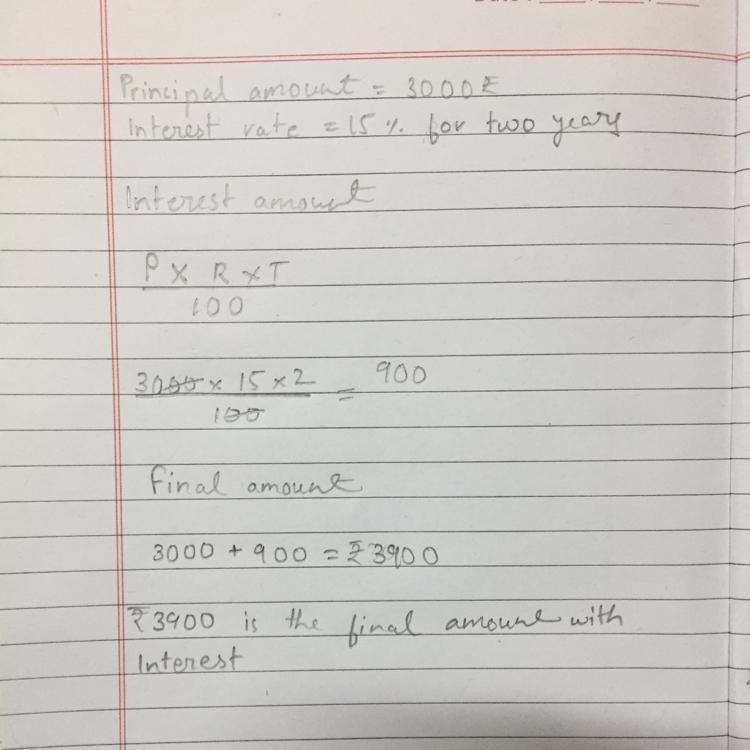 Date: ___/___/___
Principal amount = 3000₹
Interest rate = 15% for two years
Interest amount
P X R X T
100
3000 x 15 x 2 = 900
100
Final amount
3000 + 900 = ₹3900
₹3900 is the final amount with
Interest